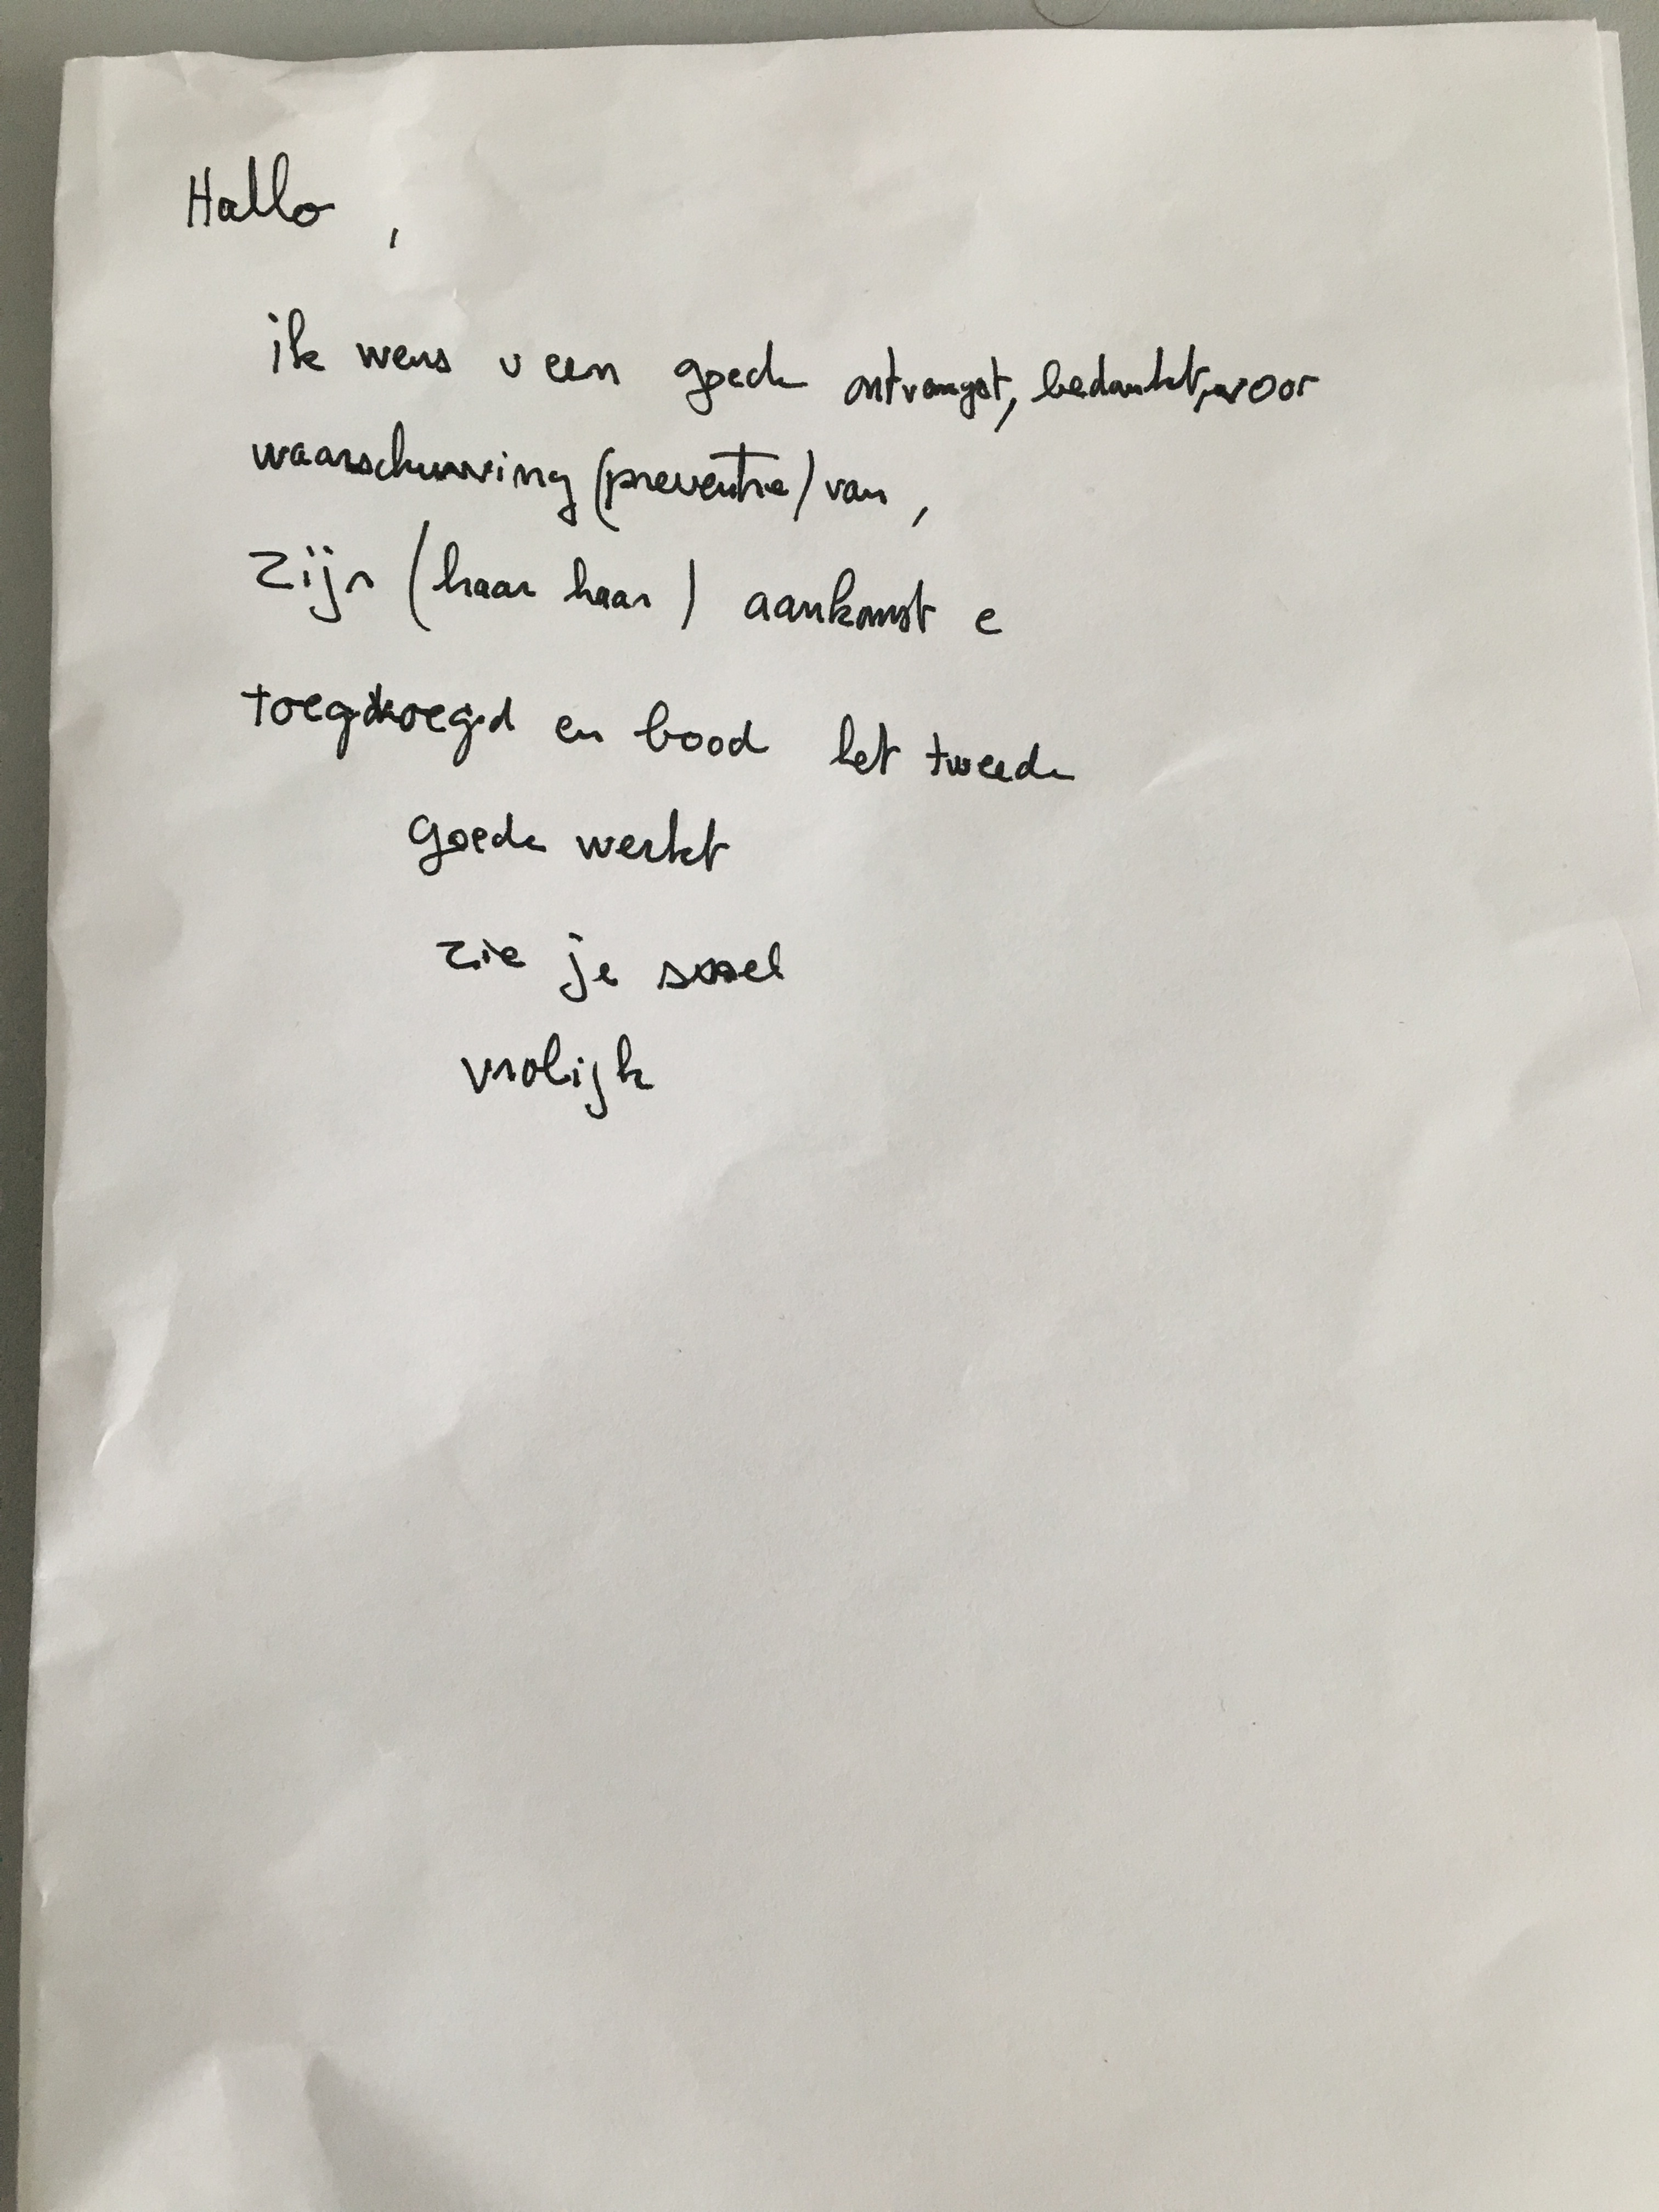 Hallo ,
ik wens u een goede ontvangst, bedankt, voor
waarschuwing (preventie) van ,
zijn (haar haar) aankomst e
en bood het tweede
goede werkt
zie je snel
vrolijk